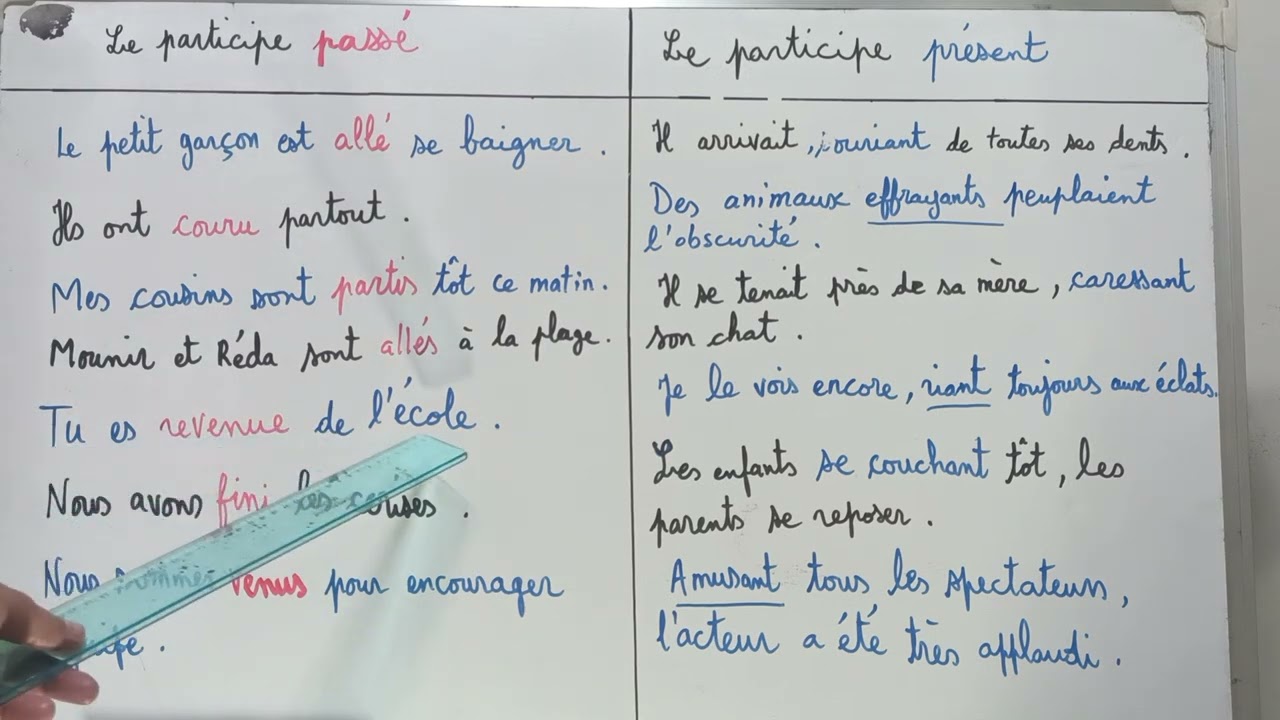 Le participe passé
Le petit garçon est allé se baigner .
Ils ont couru partout .
Mes cousins sont partis tôt ce matin .
Mounir et Réda sont allés à la plage .
Tu es revenue de l'école .
Nous avons fini
Nous sommes venus pour encourager
Le participe présent
Il arrivait , souriant de toutes ses dents .
Des animaux effrayants peuplaient
l'obscurité .
Il se tenait près de sa mère , caressant
son chat .
Je le vois encore , riant toujours aux éclats .
Les enfants se couchant tôt , les
parents se reposer .
Amusant tous les spectateurs ,
l'acteur a été très applaudi .